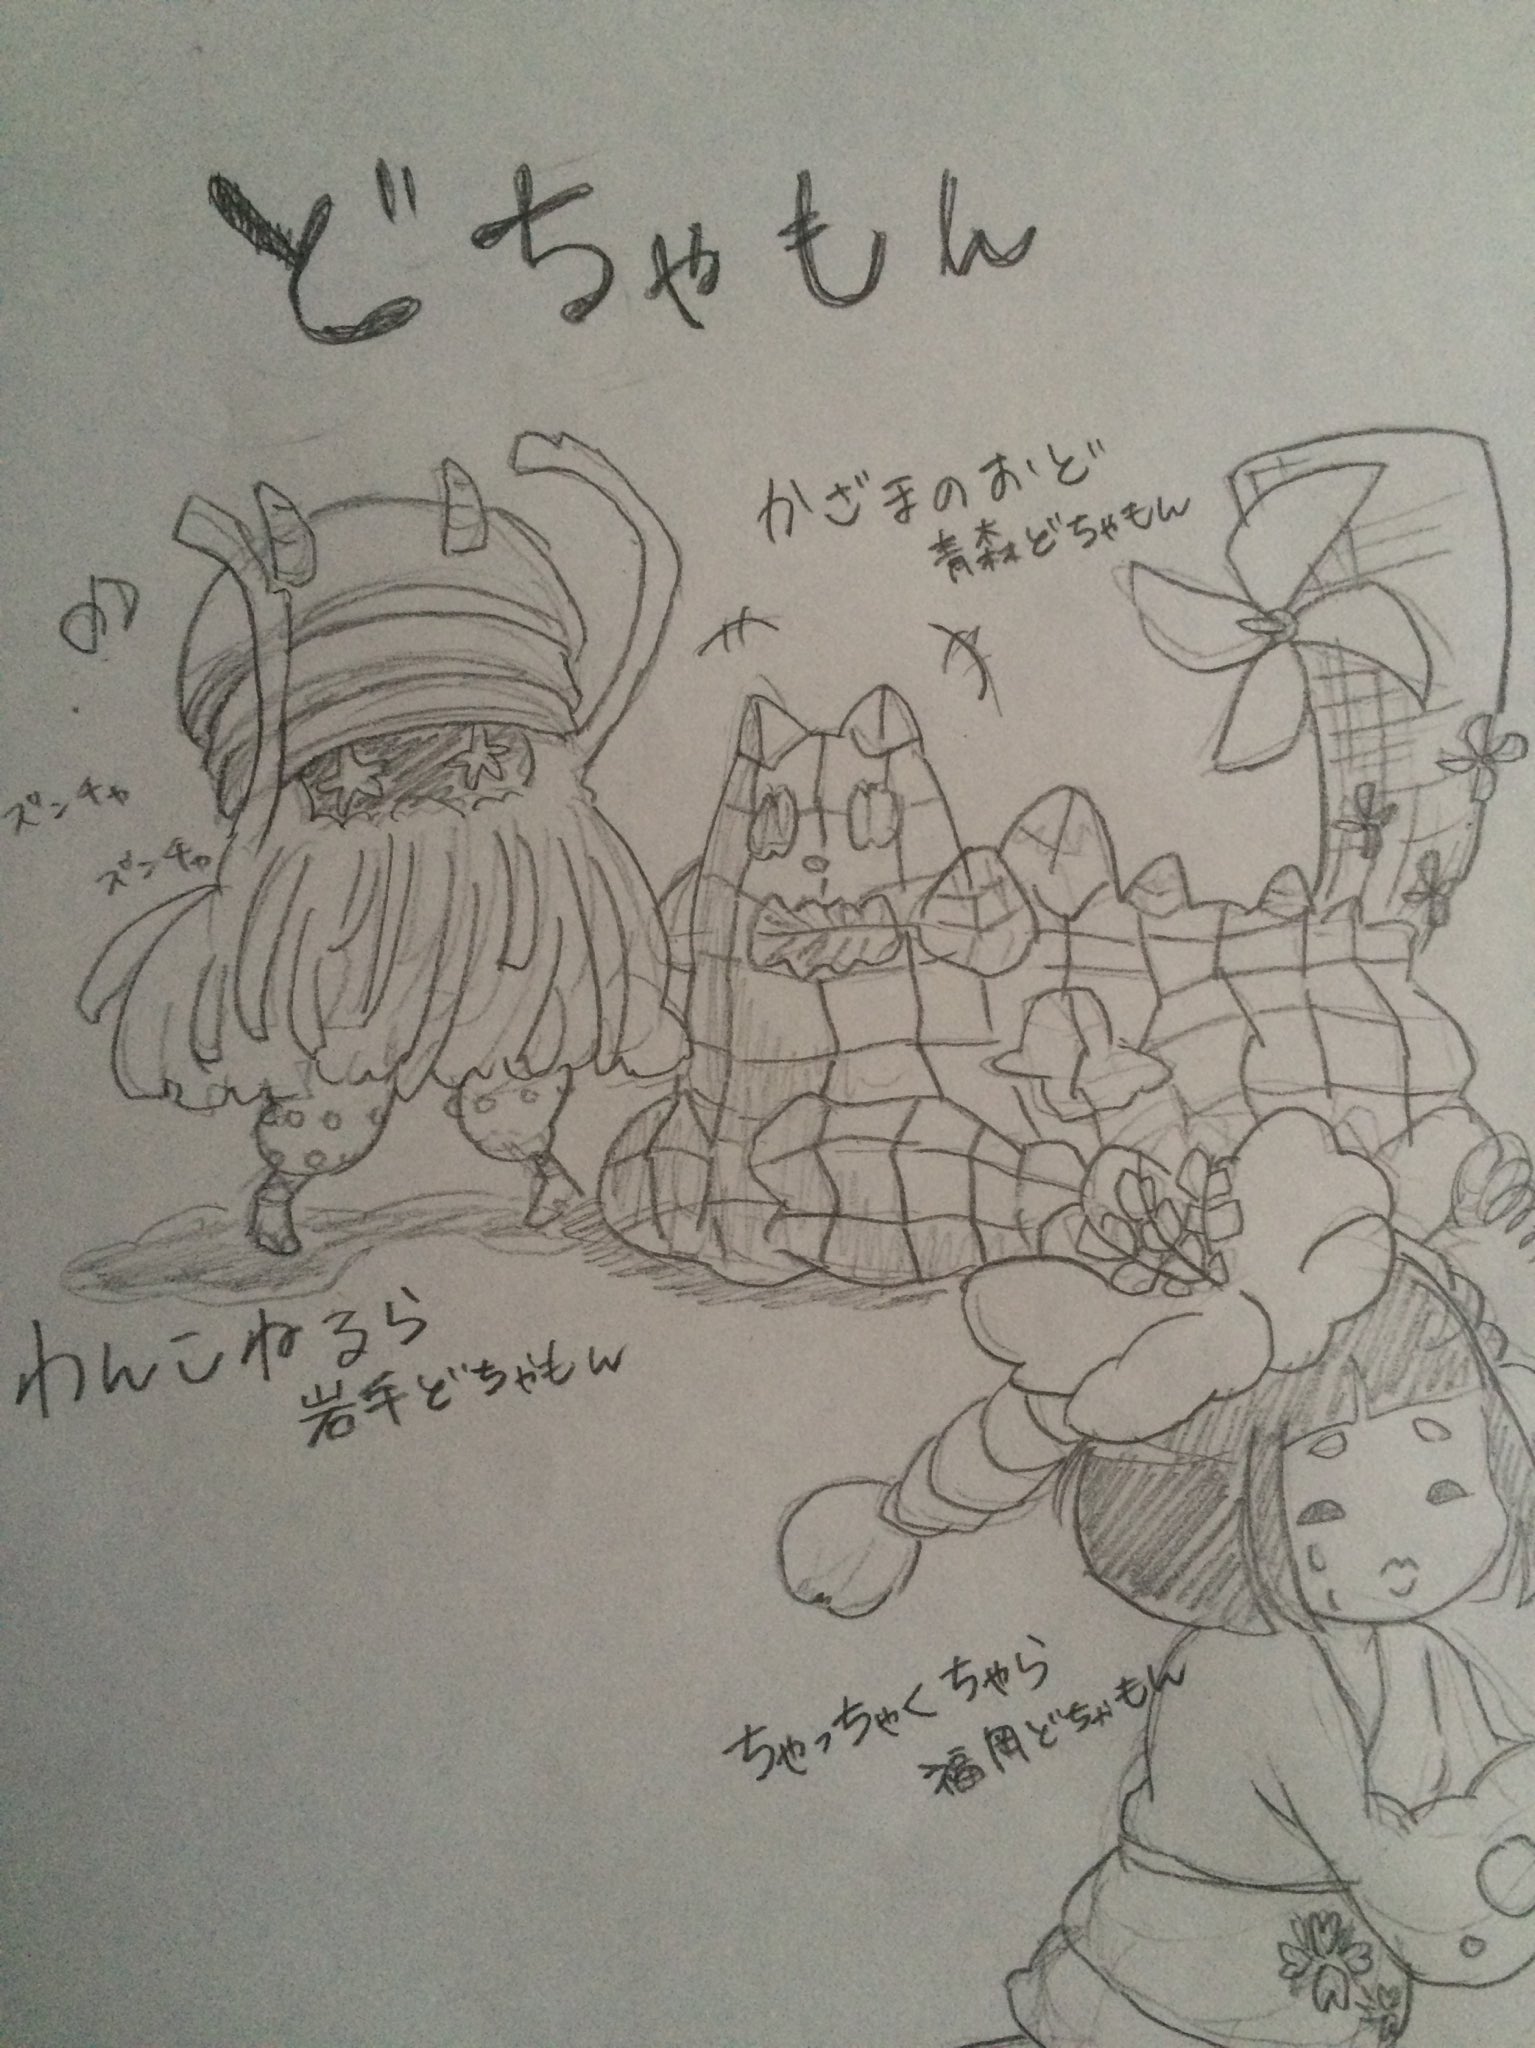 どちゃもん
かざまのおど
青森どちゃもん
ズンチャ
ズンチャ
わんこねるら
岩手どちゃもん
ちゃっちゃくちゃら
福岡どちゃもん